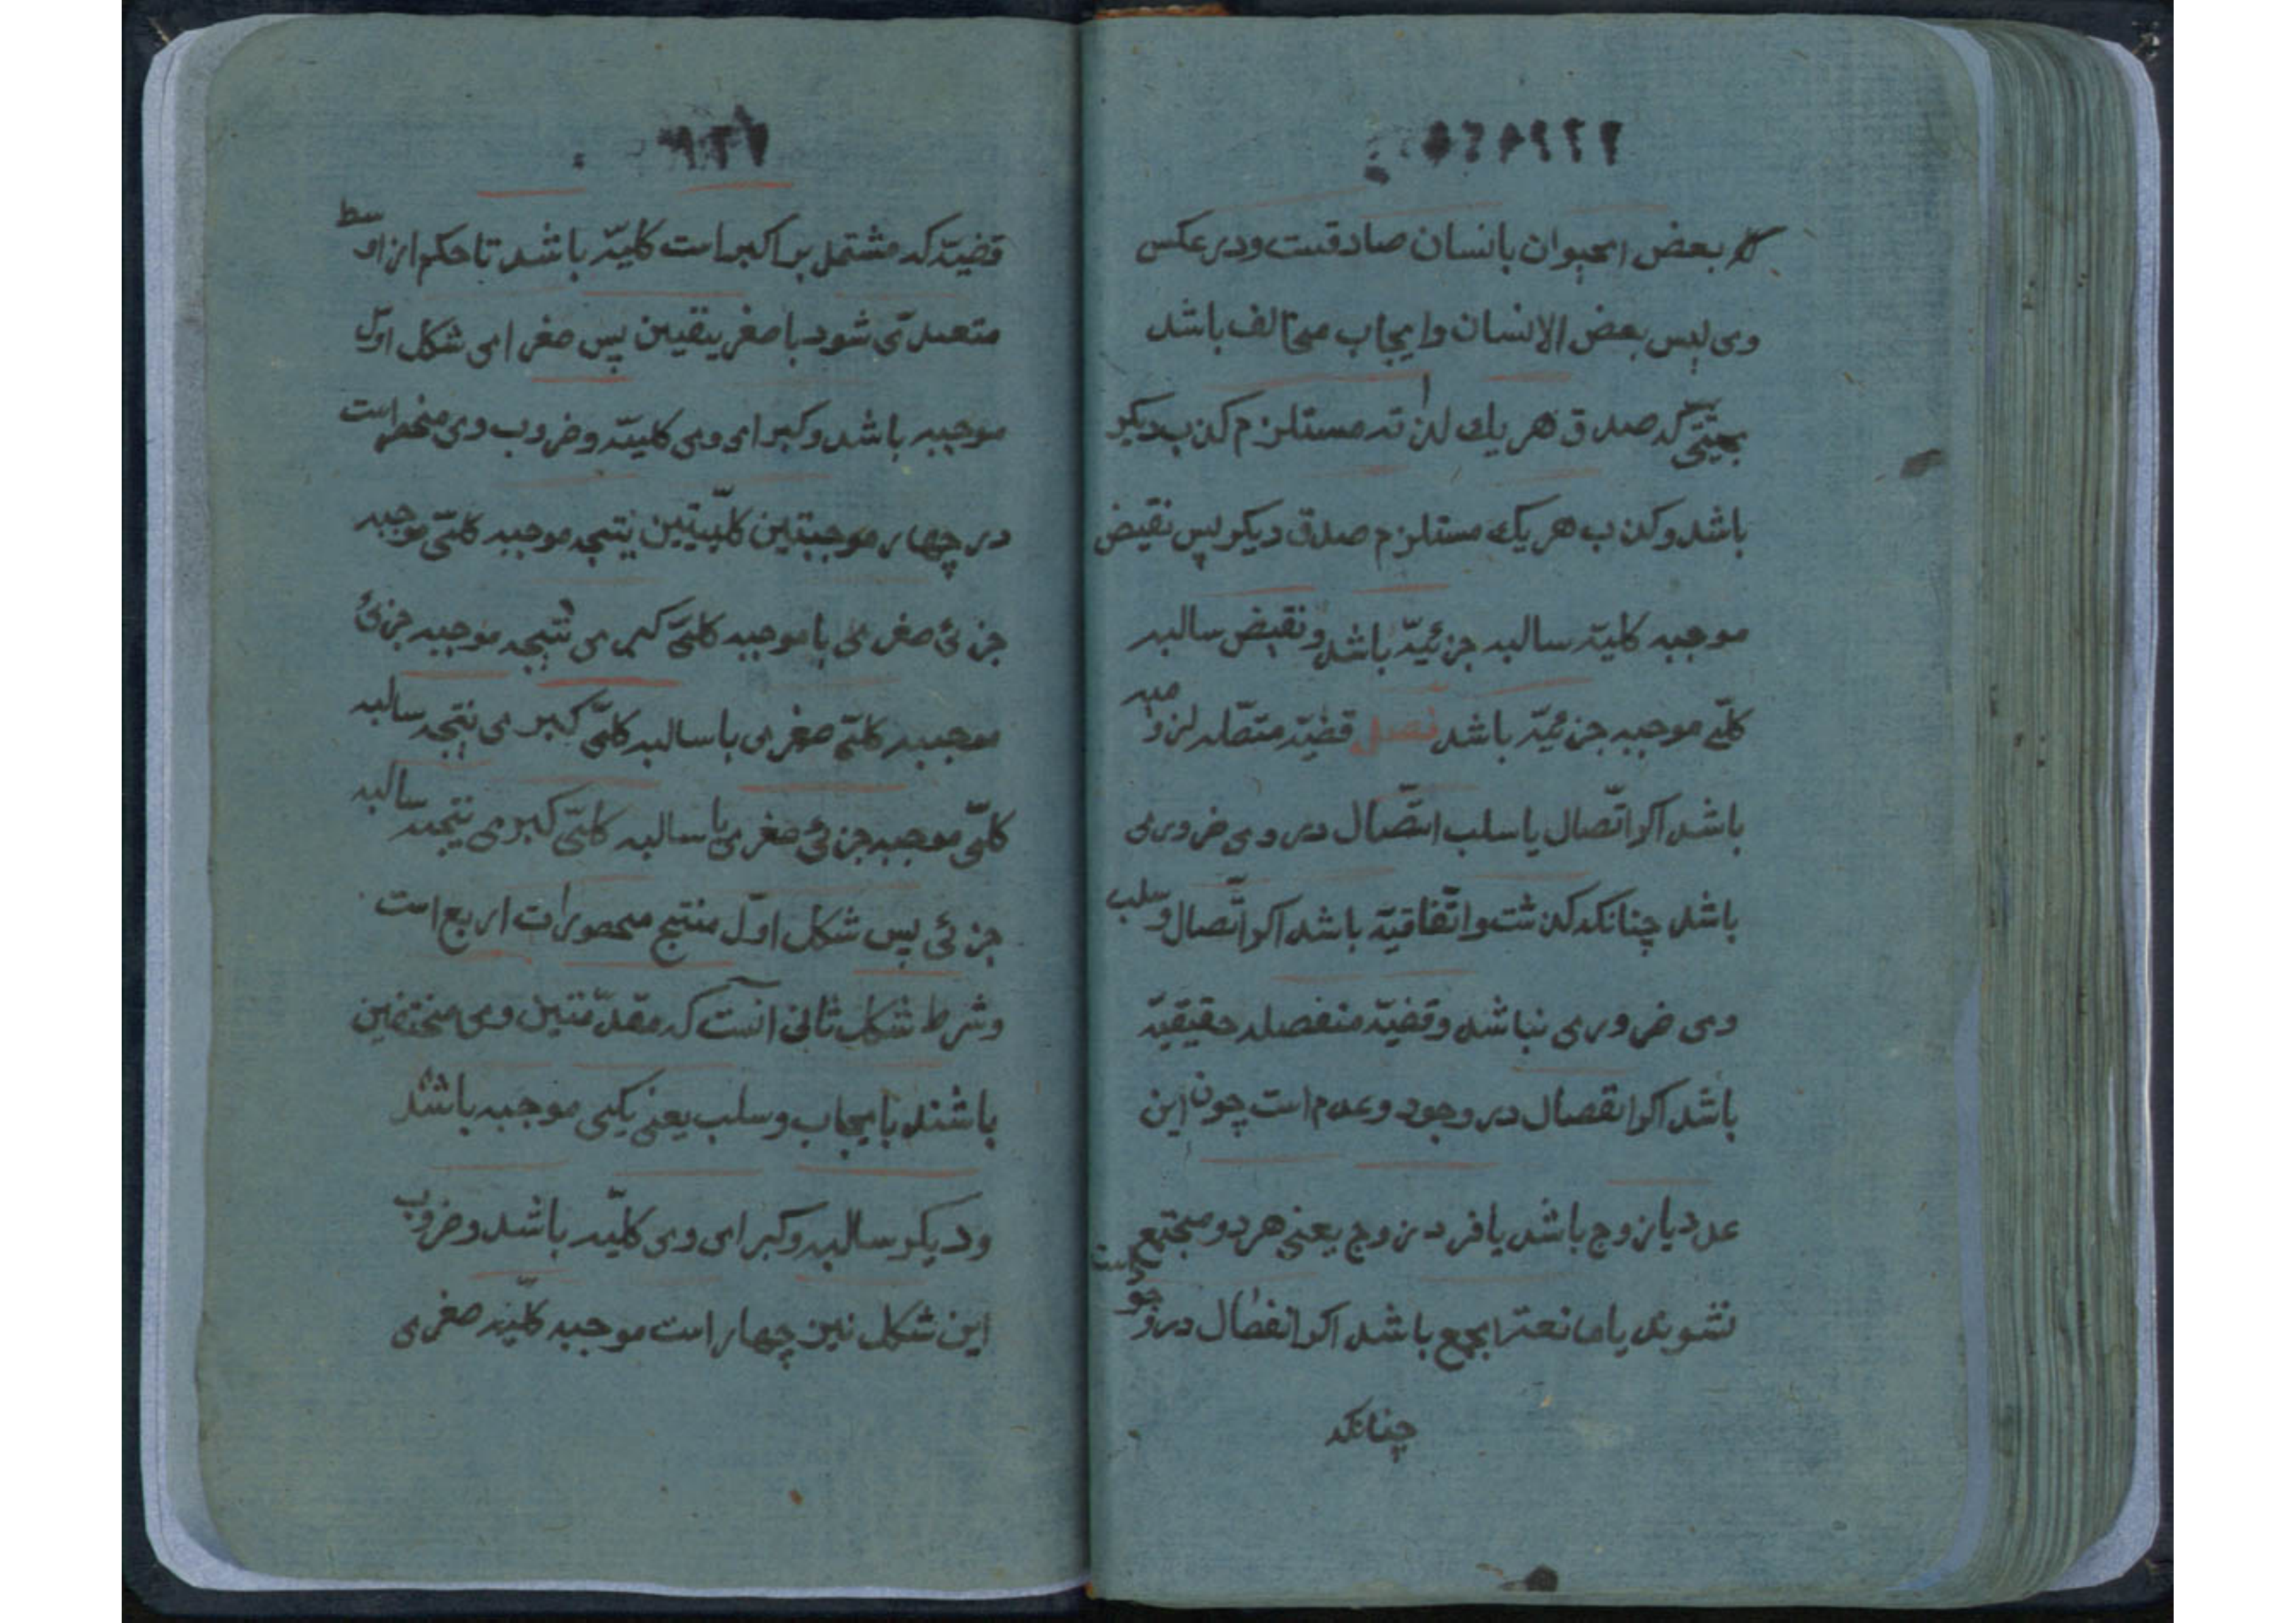 ۲۲۹۸۵۴۵
که بعض الحیوان بانسان صادقست ودر عکس
وی لیس بعض الانسان وایجاب مخالف باشد
بحیثیتی که صدق هر یك لذاته مستلزم کذب دیکر
باشد وکذب هر یك مستلزم صدق دیکر پس نقیض
موجبه کلیّه سالبه جزئیّه باشد ونقیض سالبه
کلّی موجبه جزئیّه باشد فصل قضیّه متّصله لزومیه
باشد اکر اتّصال یا سلب اتّصال در وی ضروری
باشد چنانکه کذشت واتّفاقیّه باشد اکر اتّصال وسلب
وی ضروری نباشد وقضیّه منفصله حقیقیّه
باشد اکر انفصال در وجود وعدم است چون این
عدد یا زوج باشد یا فرد زوج یعنی هر دو مجتمع
نشوند یا مانعة الجمع باشد اکر انفصال در وجود است
چنانکه
قضیّه که مشتمل بر اکبر است کلیّه باشد تا حکم از اوسط
متعدّی شود باصغر بیقین پس صغرای شکل اوّل
موجبه باشد وکبرای وی کلیّه وضروب وی منحصر است
در چهار موجبتین کلّیّتین نتیجه موجبه کلّی موجبه
جزئی صغری با موجبه کلّی کبری نتیجه موجبه جزئی
موجبه کلّی صغری با سالبه کلّی کبری نتیجه سالبه
کلّی موجبه جزئی صغری با سالبه کلّی کبری نتیجه سالبه
جزئی پس شکل اوّل منتج محصورات اربع است
وشرط شکل ثانی آنست که مقدّمتین وی مختلفین
باشند بایجاب وسلب یعنی یکی موجبه باشد
ودیکر سالبه وکبرای وی کلّیه باشد وضروب
این شکل نیز چهار است موجبه کلّیّه صغری